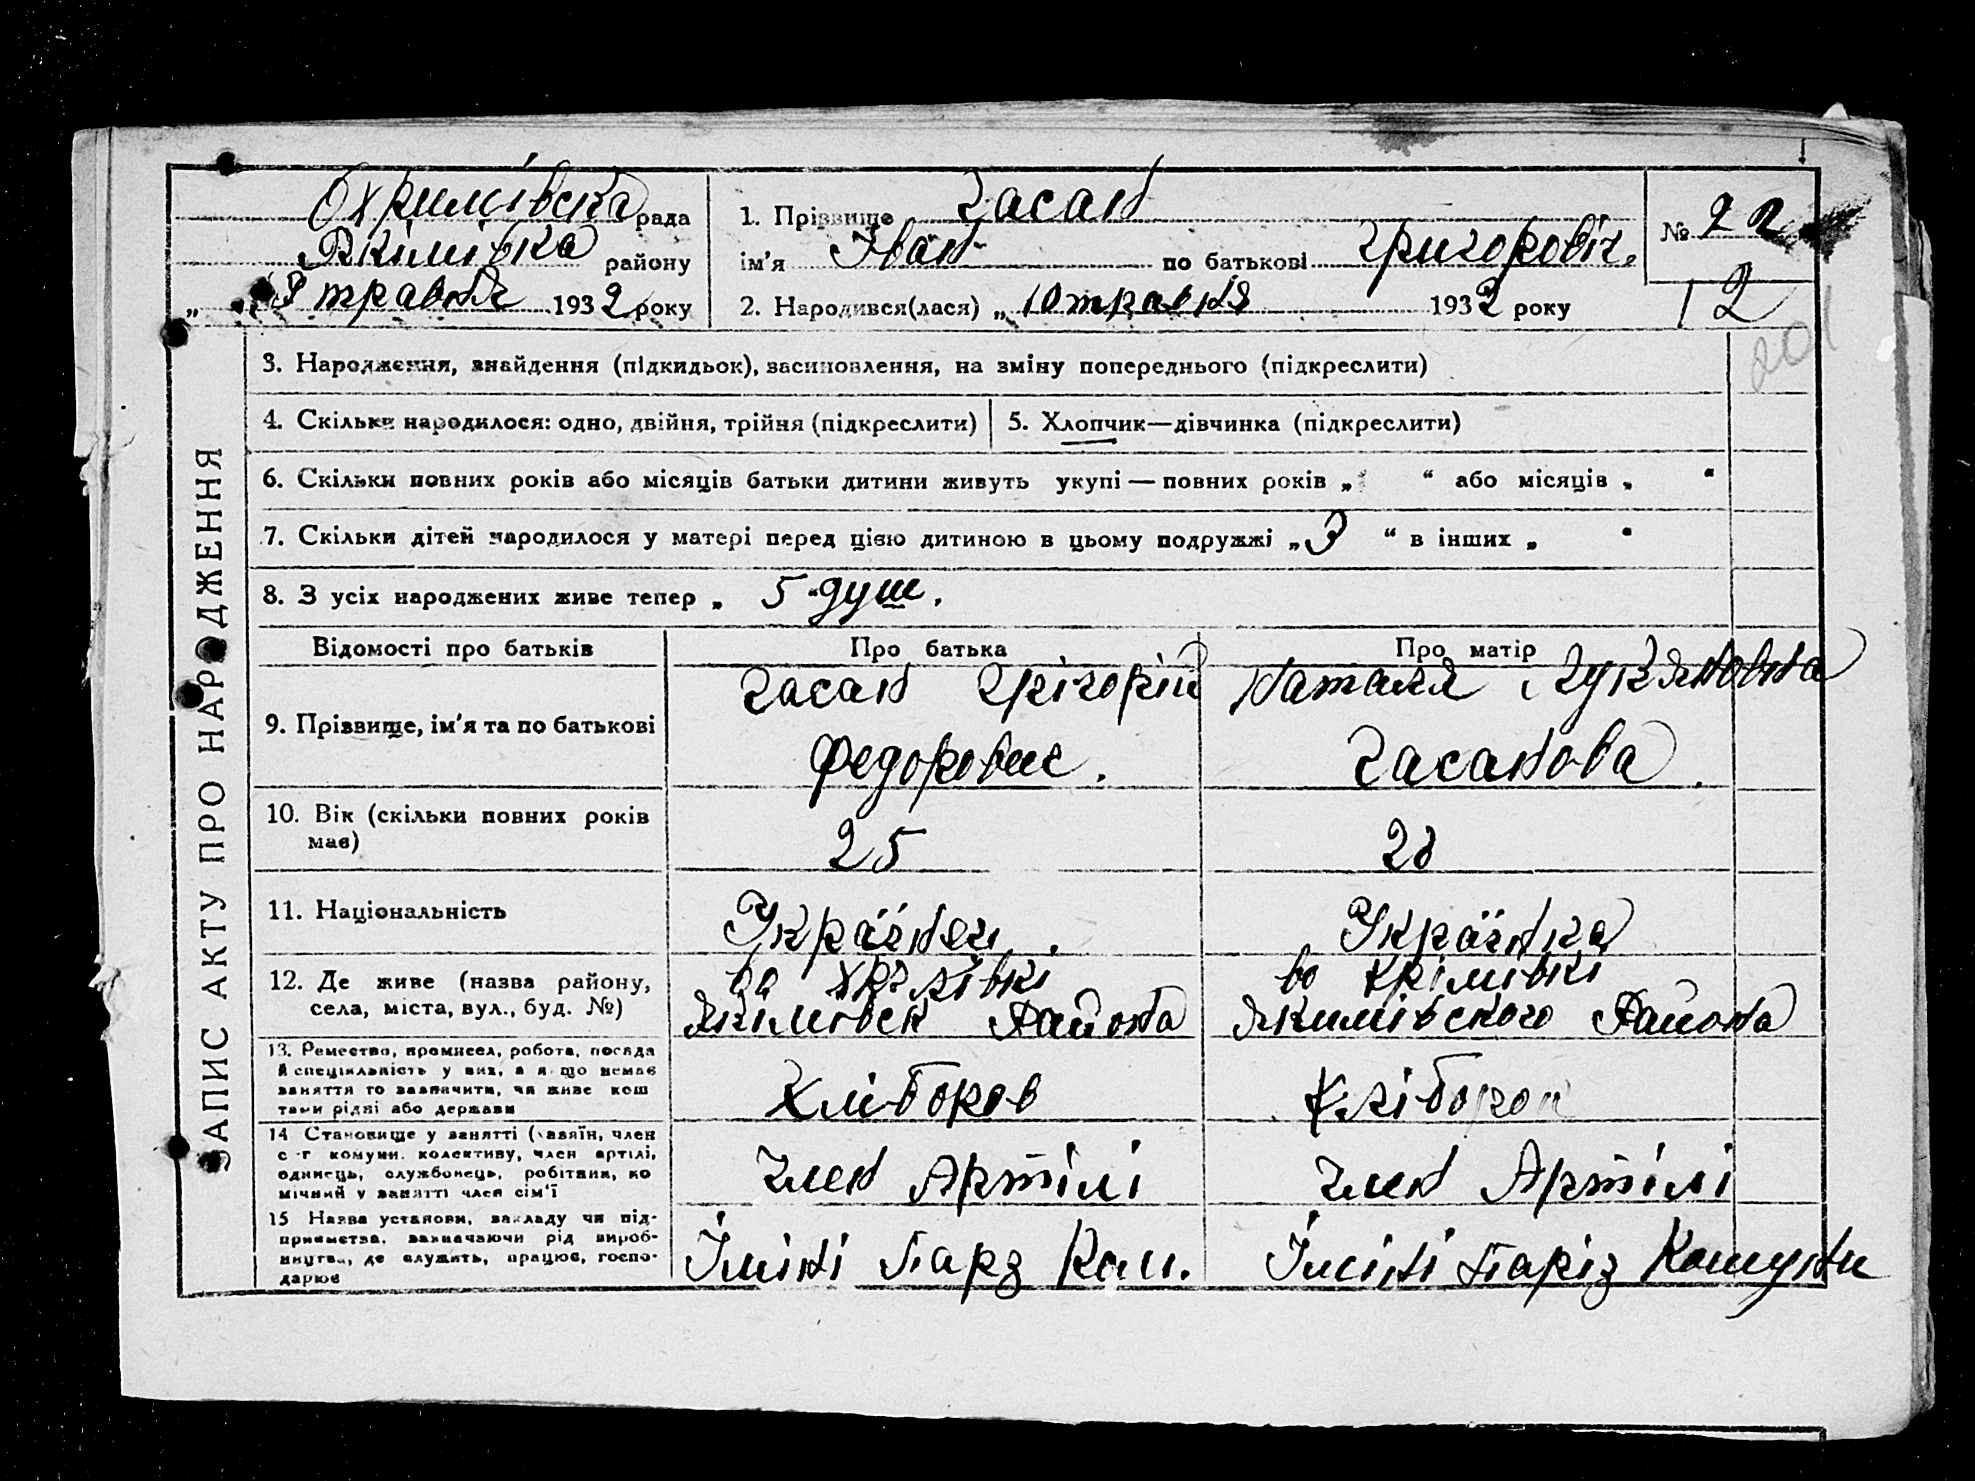 Охримівска рада
Якімівка району
" травня 1932 року
1. Прізвище Гасан
ім'я Іван по батькові Григоровіч.
2. Народився(лася) „ 10 травня 1932 року
№ 22
12
201
ЗАПИС АКТУ ПРО НАРОДЖЕННЯ
3. Народження, знайдення (підкидьок), засиновлення, на зміну попереднього (підкреслити)
4. Скільки народилося: одно, двійня, трійня (підкреслити) 5. Хлопчик—дівчинка (підкреслити)
6. Скільки повних років або місяців батьки дитини живуть укупі — повних років „ “ або місяців „ “
7. Скільки дітей народилося у матері перед цією дитиною в цьому подружжі „ 3 “ в інших „ “
8. З усіх народжених живе тепер „ 5 душ.
Відомості про батьків Про батька Про матір
9. Прізвище, ім'я та по батькові
Гасан Грігорій
Федорович.
Наталя Лукяновна
Гасанова.
10. Вік (скільки повних років
має)
25
28
11. Національність
Украйнец.
Украйнка
12. Де живе (назва району,
села, міста, вул., буд. №)
во
Якімівск Района
во Хрімівкі
Якимівского Района
13. Ремество, промисел, робота, посада
й спеціяльність у них, а якщо немає
заняття то зазначити, чи живе кош
тами рідні або держави
Хлібороб
Хлібороб
14 Становище у занятті (хазяїн, член
с -г комуни, колективу, член артілі,
одинець, службовець, робітник, по
мічний у занятті член сім'ї
Член Артілі
Член Артілі
15 Назва установи, закладу чи під-
приємства, зазначаючи рід вироб-
ництва, де служить, працює, госпо-
дарює
Імині Парз Ком.
Імині Паріз Комуни